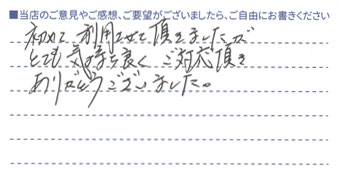 ■当店のご意見やご感想、ご要望がございましたら、ご自由にお書きください
初めて利用させて頂きましたが
とても気持ち良くご対応頂き
ありがとうございました。